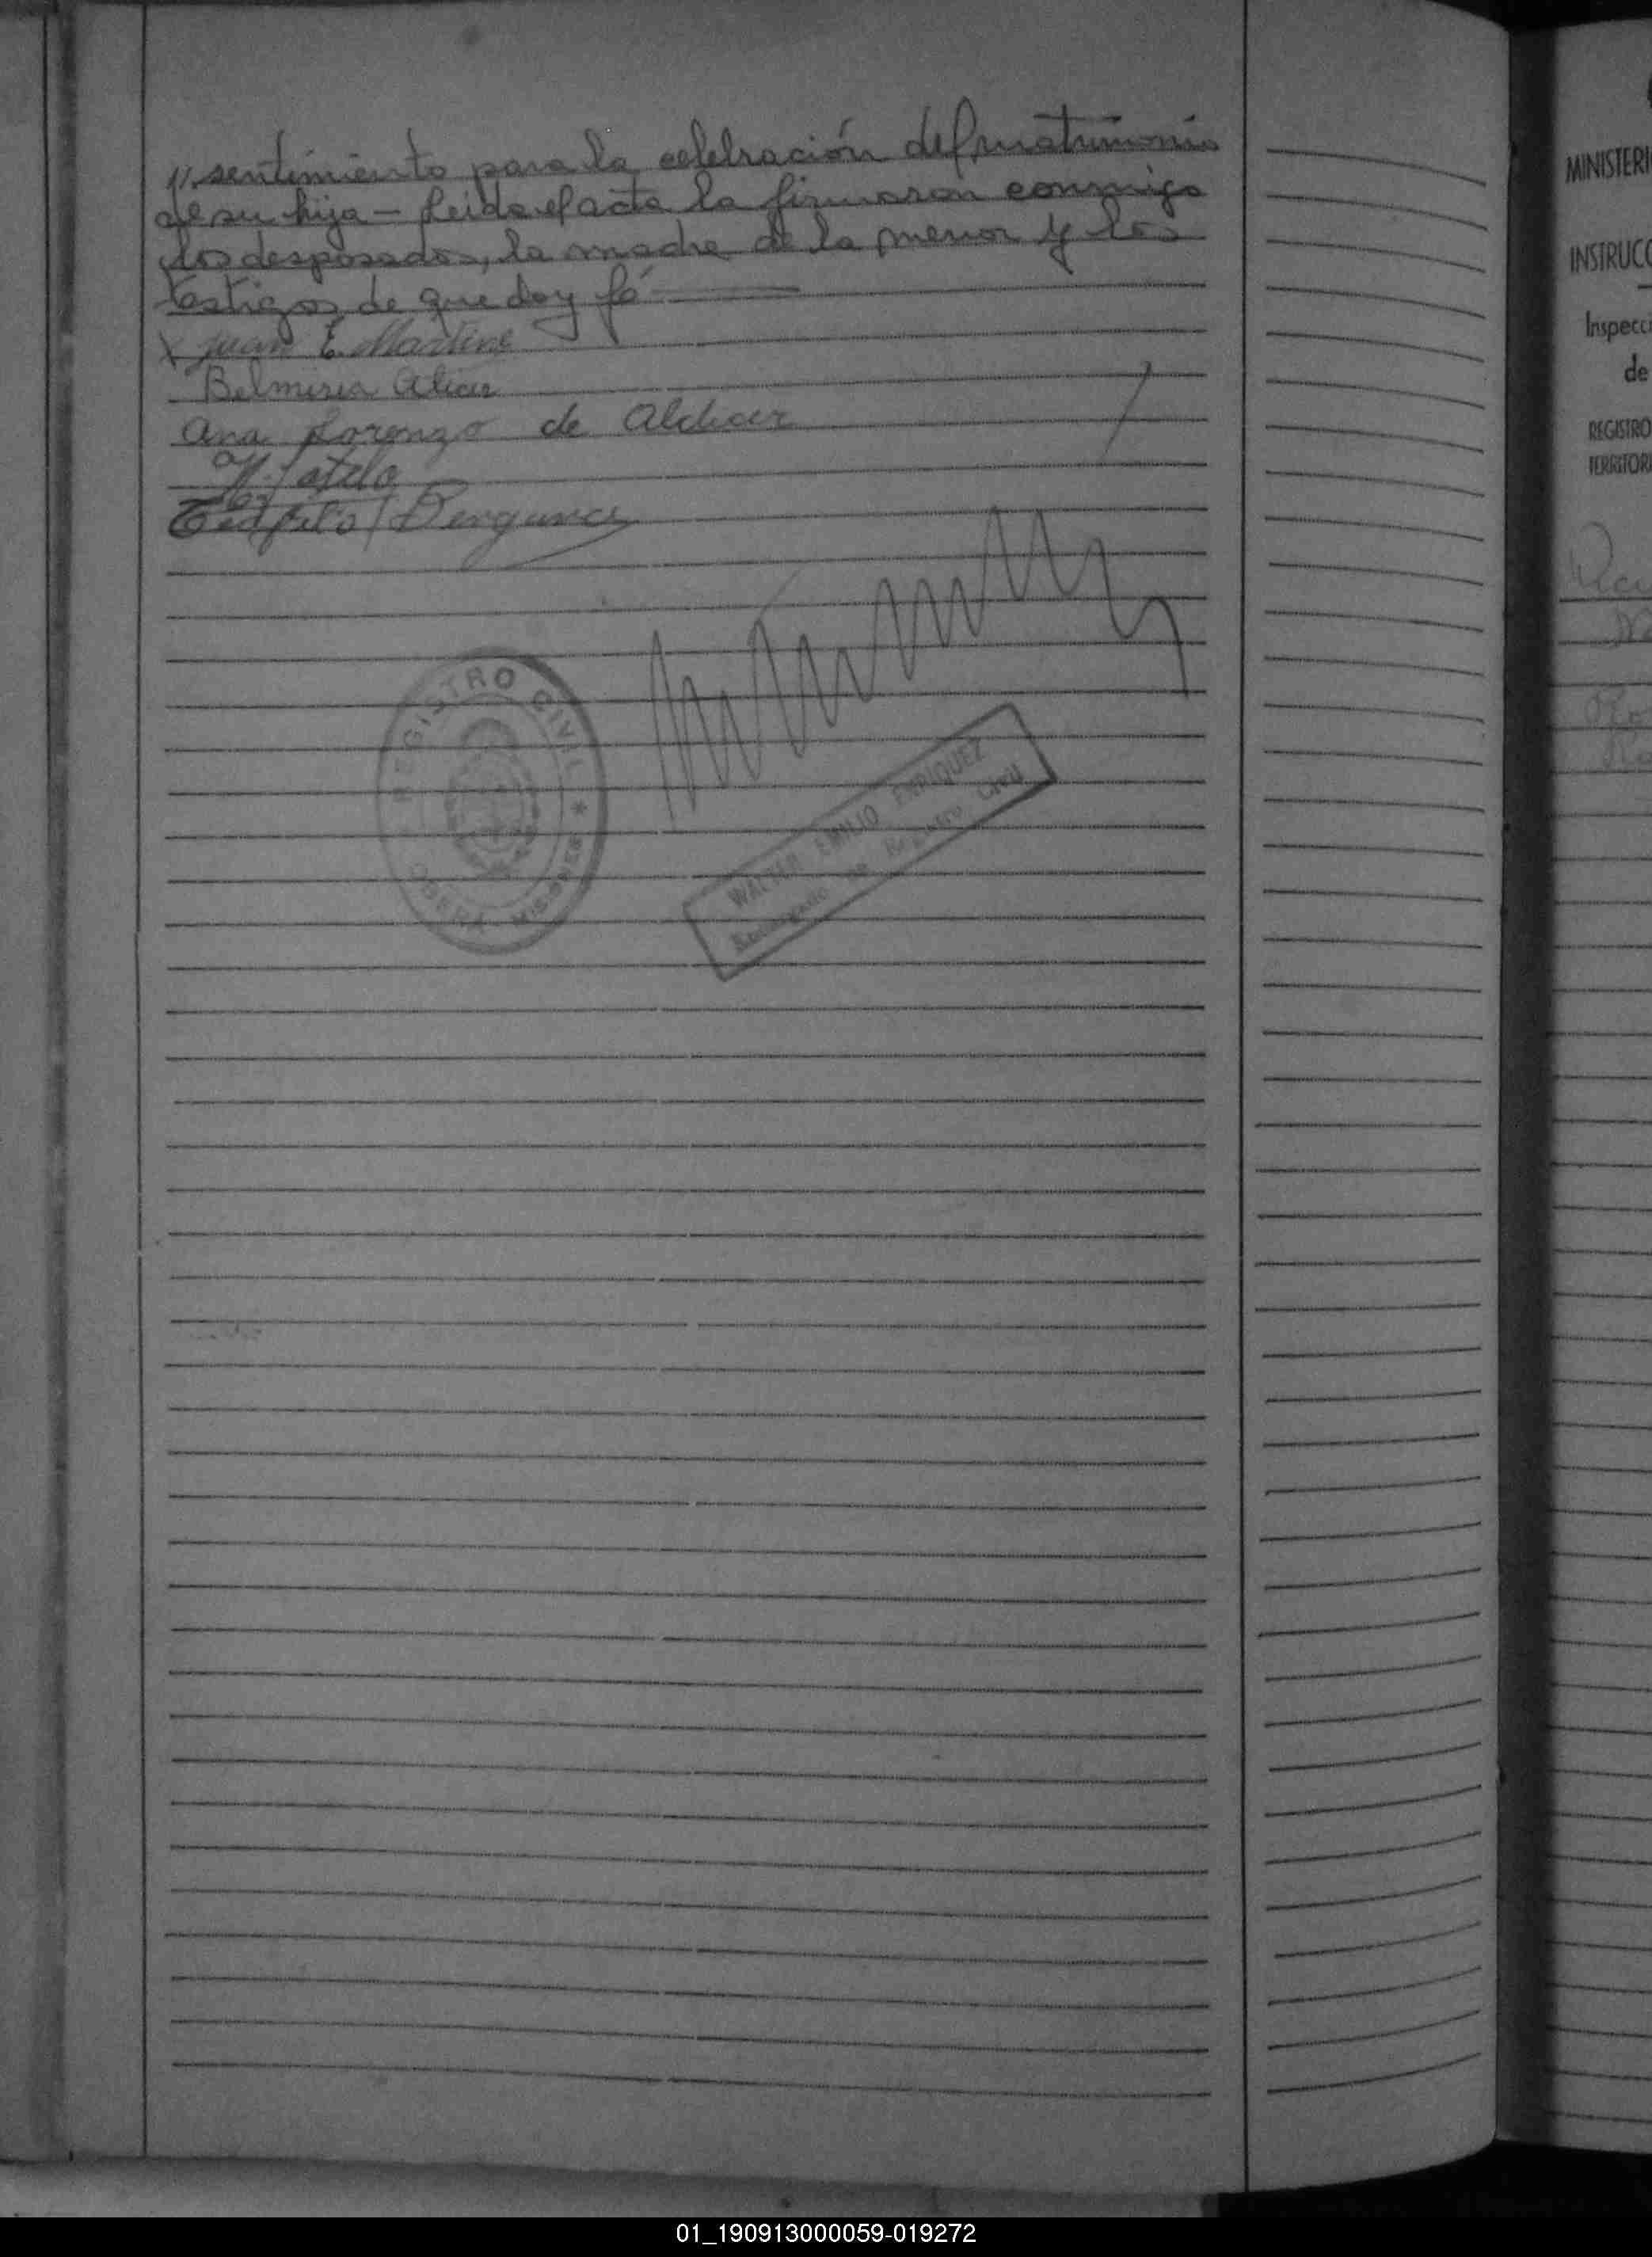 // sentimiento para la celebración del matrimonio
de su hija - Leida el acta la firmaron conmigo
los desposados, la madre de la menor y los
testigos de que doy fé
x Juan E. Martine
Belmira
Ana Lorenzo de
Teófilo
REGISTRO CIVIL *
OBERA - MISIONES
WALTER EMILIO ENRIQUEZ
Encargado de Registro Civil
MINISTERI
INSTRUCC
Inspecci
de
REGISTRO
TERRITORI
01_190913000059-019272